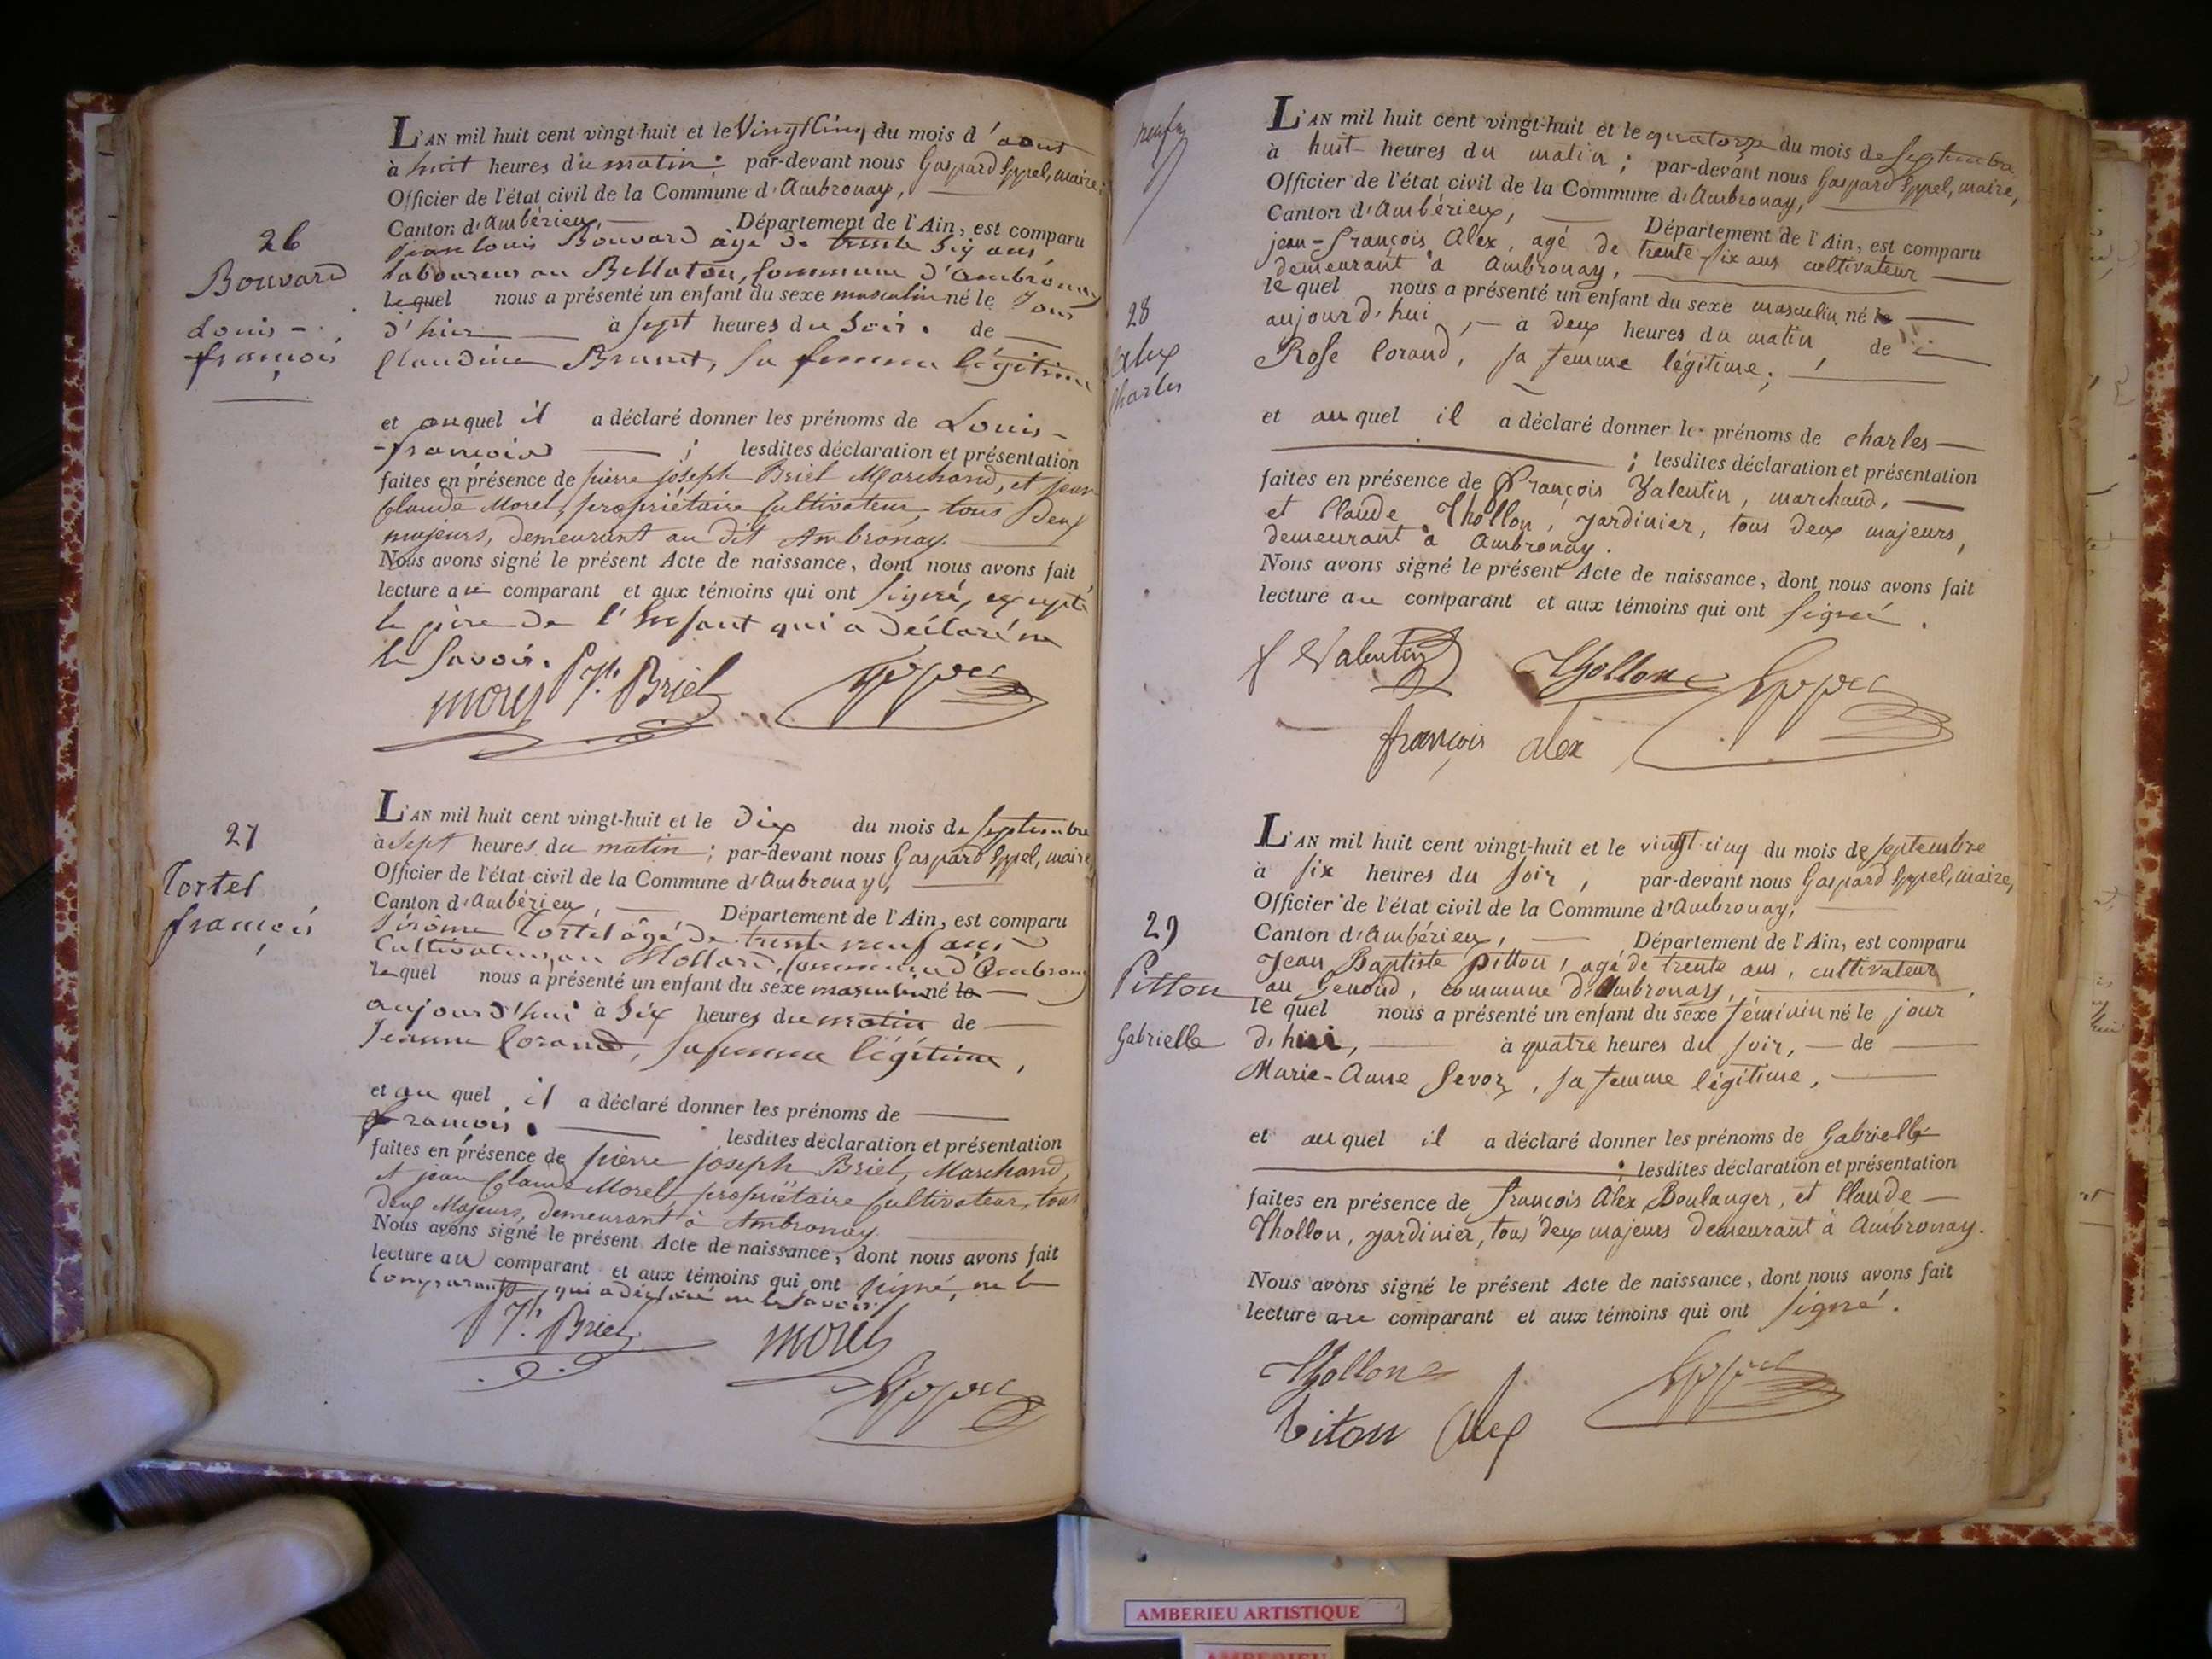 26
Bouvard
Louis-
françois
L'AN mil huit cent vingt-huit et le Vingt Cinq du mois d'aout
à huit heures du matin; par-devant nous Gaspard Eppel, maire,
Officier de l'état civil de la Commune d'Ambronay,
Canton d'Ambérieu, Département de l'Ain, est comparu
jean louis Bouvard agé de trente Six ans
laboureur au Bellaton, Commune d'Ambronay
lequel nous a présenté un enfant du sexe masculin né le Jour
d'hier à Sept heures du Soir. de
Claudine Brunet, sa femme légitime
et au quel il a déclaré donner les prénoms de Louis-
-françois ; lesdites déclaration et présentation
faites en présence de pierre joseph Briel Marchand, et jean
Claude Morel, propriétaire Cultivateur, tous Deux
majeurs, demeurant au dit Ambronay.
Nous avons signé le présent Acte de naissance, dont nous avons fait
lecture au comparant et aux témoins qui ont signé, excepté
le père de l'Enfant qui a déclaré ne
le Savoir.
morel P Jh. Briel Eppel
27
Tortel
françois
L'AN mil huit cent vingt-huit et le dix du mois de Septembre
à Sept heures du matin; par-devant nous Gaspard Eppel, maire,
Officier de l'état civil de la Commune d'Ambronay,
Canton d'Ambérieu, Département de l'Ain, est comparu
Jérôme Tortel âgé de trente neuf ans
Cultivateur, au Mollard, Commune d'Ambronay
lequel nous a présenté un enfant du sexe masculin né le
aujourd'hui à Six heures du matin de
Jeanne Corand, sa femme légitime,
et au quel il a déclaré donner les prénoms de
françois. lesdites déclaration et présentation
faites en présence de pierre joseph Briel, Marchand,
et jean Claude Morel, propriétaire Cultivateur, tous
deux Majeurs, demeurant à Ambronay
Nous avons signé le présent Acte de naissance, dont nous avons fait
lecture au comparant et aux témoins qui ont signé, ne le
Comparant, qui a déclaré ne le Savoir.
P Jh. Briel morel
Eppel
neuf
28
Alex
Charles
L'AN mil huit cent vingt-huit et le quatorze du mois de Septembre
à huit heures du matin; par-devant nous Gaspard Eppel, maire,
Officier de l'état civil de la Commune d'Ambronay,
Canton d'Ambérieu, Département de l'Ain, est comparu
jean-françois Alex, agé de trente-six ans cultivateur
demeurant à Ambronay,
lequel nous a présenté un enfant du sexe masculin né le
aujourd'hui, à deux heures du matin de
Rose Corand, sa femme légitime;
et au quel il a déclaré donner les prénoms de charles
; lesdites déclaration et présentation
faites en présence de François Valentin, marchand,
et Claude Thollon, jardinier, tous deux majeurs,
demeurant à Ambronay.
Nous avons signé le présent Acte de naissance, dont nous avons fait
lecture au comparant et aux témoins qui ont signé.
f Valentin Thollon Eppel
françois alex
29
Pitton
Gabrielle
L'AN mil huit cent vingt-huit et le vingt cinq du mois de septembre
à six heures du soir, par-devant nous Gaspard Eppel, maire,
Officier de l'état civil de la Commune d'Ambronay,
Canton d'Ambérieu, Département de l'Ain, est comparu
Jean Baptiste Pitton, agé de trente ans, cultivateur
au Genoud, commune d'Ambronay,
lequel nous a présenté un enfant du sexe féminin né le jour
d'hui, à quatre heures du soir, de
Marie-Anne Sevoz, sa femme légitime,
et au quel il a déclaré donner les prénoms de Gabrielle
; lesdites déclaration et présentation
faites en présence de françois Alex Boulanger, et Claude
Thollon, jardinier, tous deux majeurs demeurant à Ambronay.
Nous avons signé le présent Acte de naissance, dont nous avons fait
lecture au comparant et aux témoins qui ont signé.
Thollon Eppel
Piton Alex
AMBERIEU ARTISTIQUE
AMBERIEU